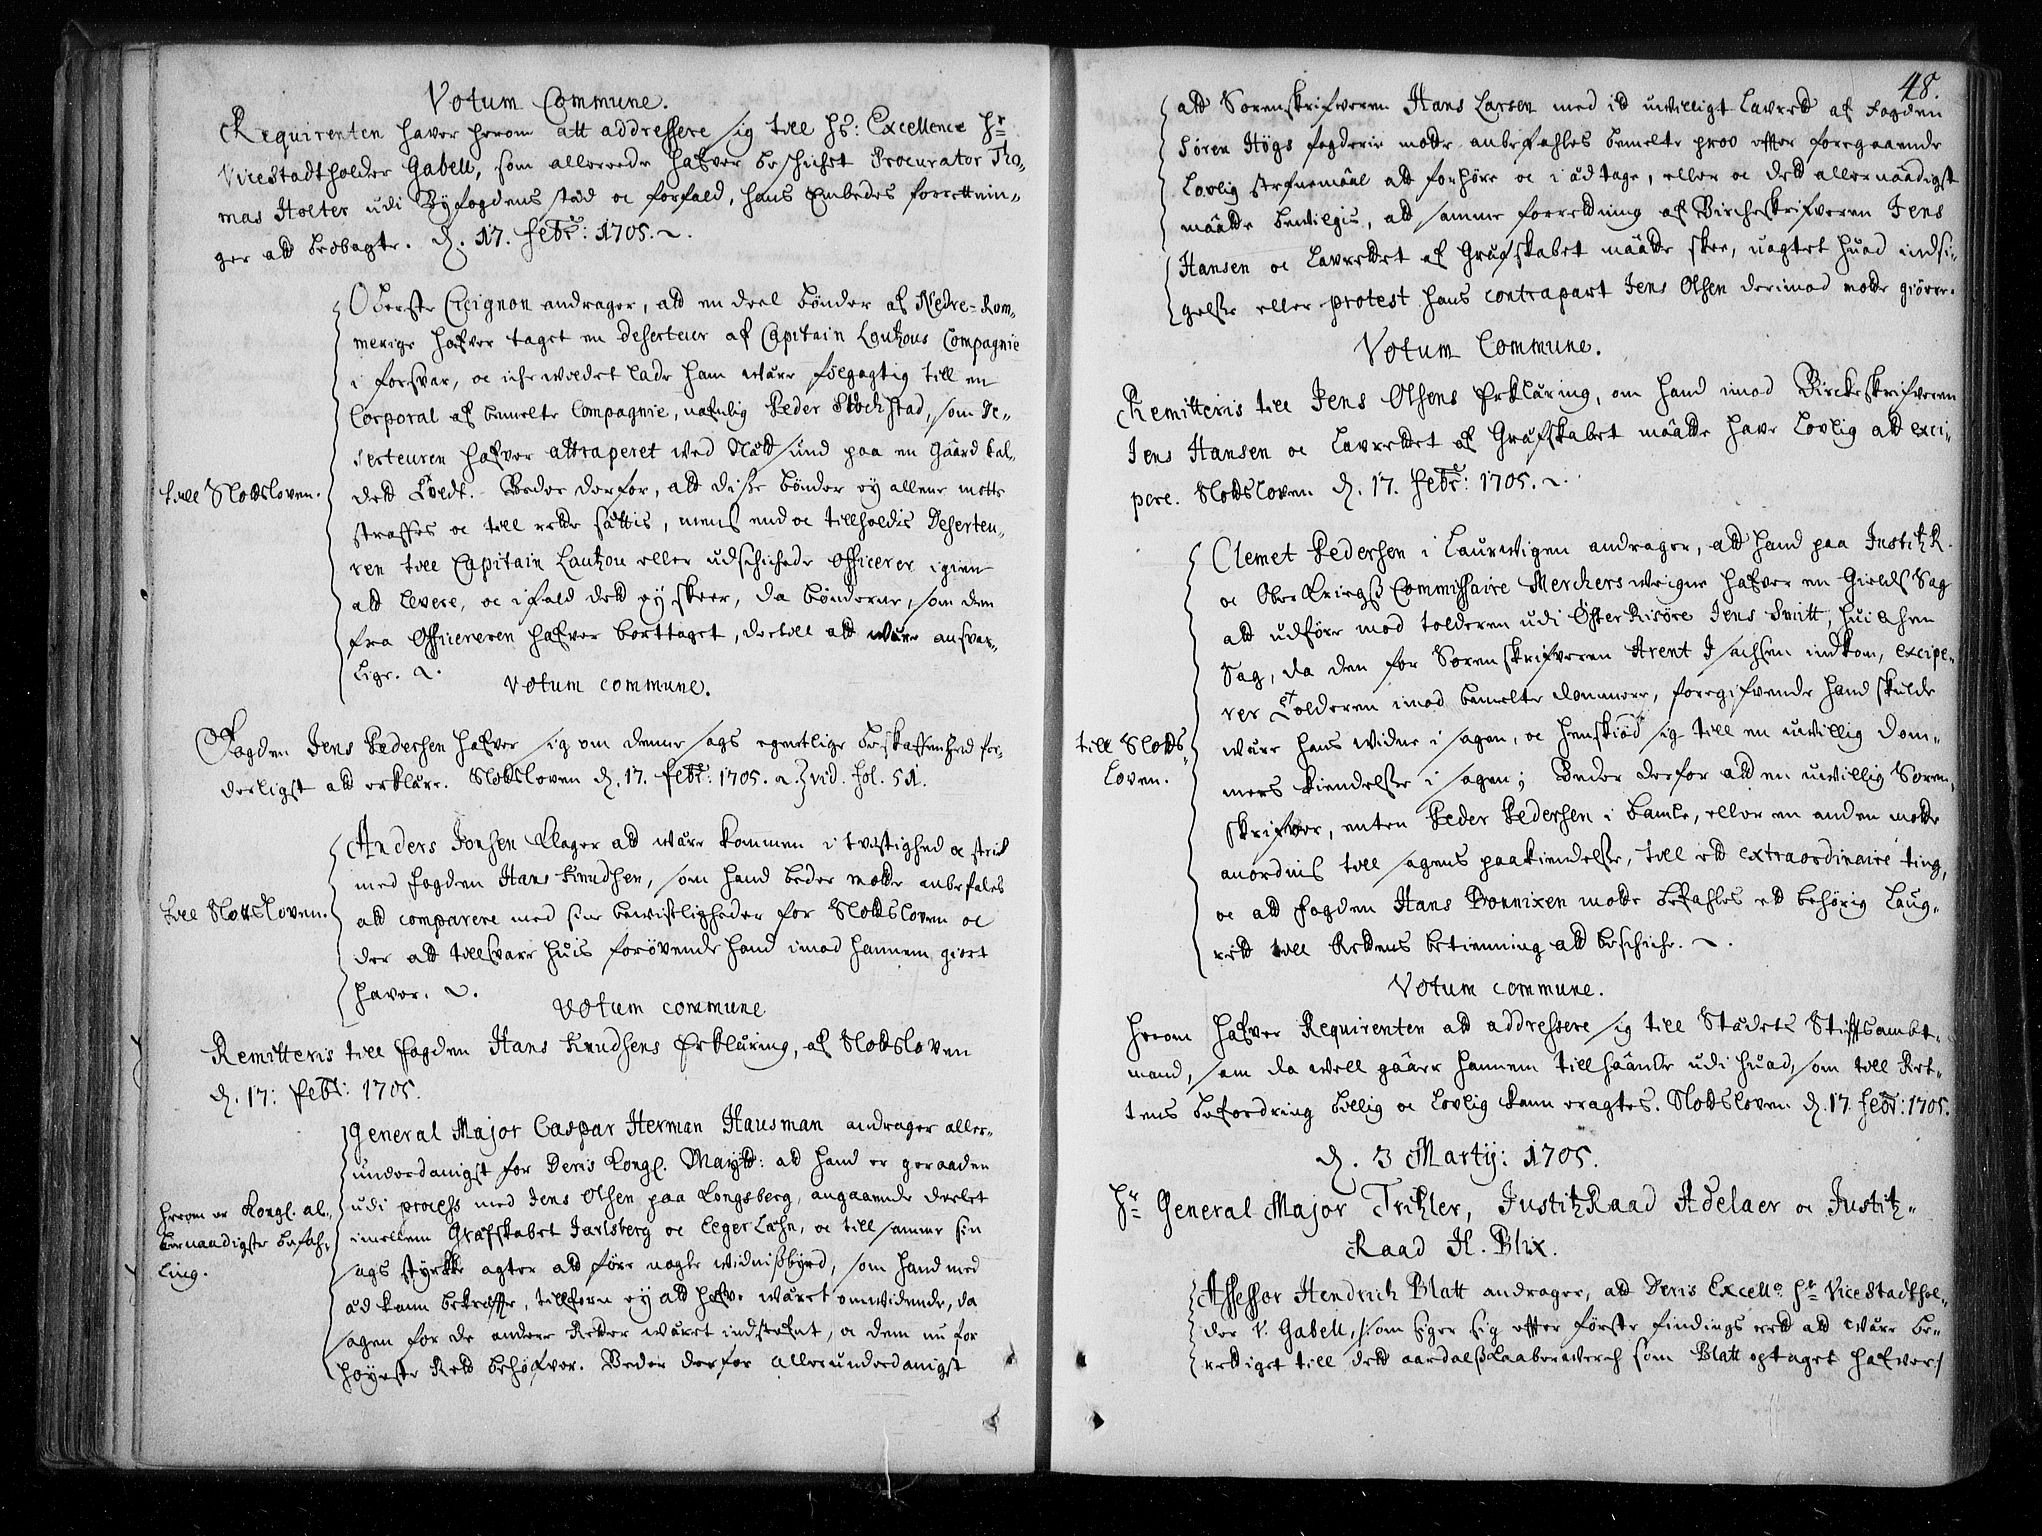 Votum Commune.
Requirenten haver herom att addressere sig till hs: Excellence Hr
Vicestadtholder Gabell, som allereede hafver beschichet Procurator Tho-
mas Holter udi Byfogdens stæd oc forfald, hans Embedes forrettnin-
ger att beobagte. d. 17. Febr: 1705.
Oberste Cicignon andrager, att en deel bønder af Nedre-Rom-
merige hafver taget en deserteur af Capitain Loutzous Compagnie
i forsvar, oc iche wildet lade ham være følgagtig till en
Corporal af bemelte Compagnie, nafnlig Peder Stochstad, som De-
serteuren hafver attraperet wed Nattsund paa en Gaard kal-
till Slottsloven.
dett Tvedt. Beder derfor, att disse bønder ey allene motte
straffes oc till rette sættis, mens end oc tillholdis Deserteu-
ren till Capitain Loutzou eller udschichede Officerer igien
att levere, oc ifald dett ey skeer, da bønderne, som dem
fra Officereren hafver borttaget, dertill att være ansvar-
lige.
Votum commune.
Fogden Jens Pedersen hafver sig om denne sags egentlige beskaffenhed for-
derligst att erklære. Slottsloven d. 17. Febr: 1705. vid. fol. 51.
Anders Jonsen klager att være kommen i tvistighed oc striid
med fogden Hans Knudsen, som hand beder motte anbefales
till Slottsloven.
att comparere med sine bewisligheder for Slottsloven oc
der att tillsvare huis forøvende hand imod hannem giort
haver.
Votum commune
Remitteris till fogden Hans Knudsens Erklæring, af Slottsloven
d. 17: Febr: 1705.
General Major Caspar Herman Hausman andrager aller-
underdanigst for Deris Kongl. Maytt: att hand er geraaden
udi process med Jens Olsen paa Kongsberg, angaaende deelet
herom er Kongl. al-
imellem Grefskabet Jarlsberg oc Eeger Lehn, oc till samme sin
lernaadigste befah-
sags styrkke agter att føre nogle widnisbyrd, som hand med
ling.
æd kann bekræffte, tillforn ey att hafve wæret omwidende, da
sagen for de andere Retter wæret indstefnt, oc dem nu for
høyeste Rett behøfver. Beder derfor allerunderdanigst
48.
att Sorenskrifveren Hans Larsen med id uwilligt Lavrett af fogden
Søren Høgs fogderie motte anbefahles bemelte prov effter foregaaende
Lovlig stefnemaal att forhøre oc i æd tage, eller oc dett allernaadigst
maatte bewilgis, att samme forretning af Bircheskrifveren Jens
Hansen oc Lavrettet af Grefskabet maatte skee, uagtet huad indsi-
gelse eller protest hans contrapart Jens Olsen derimod motte giøre.
Votum Commune.
Remitteris till Jens Olsens Erklæring, om hand imod Birckeskrifveren
Jens Hansen oc Lavrettet af Grefskabet maatte have Lovlig att exci-
pere. Slottsloven d. 17. Febr: 1705.
Clemet Pedersen i Laurwigen andrager, att hand paa JustitzR.
oc Ober Kriegs Commissaire Merckers weigne hafver en Gields Sag
att udføre mod tolderen udi Øster Risøre Jens Smitt, huilchen
Sag, da den for Sorenskrifveren Arent Isachsen indkom, excipe-
rer Tolderen imod bemelte dommere, foregifvende hand skulde
till Slotts
være hans widne i sagen, oc henskiød sig till en uwillig dom-
loven.
mers kiendelse i sagen; Beder derfor att en uwillig Soren-
skrifver, enten Peder Pedersen i Bamle, eller en anden motte
anordnis till sagens paakiendelse, till ett extraordinaire ting,
oc att fogden Hans Bonnixen motte befahles ett behørig Laug-
rett till Rettens betienning att beschiche.
Votum commune.
Herom hafver Requirenten att addressere sig till Stædets Stiftsambt-
mand, som da well gaaer hannem tillhaande udi huad, som till Ret-
tens befordring billig oc lovlig kann eragtes. Slottsloven d. 17. Febr: 1705.
d. 3 Martij: 1705.
Hr General Major Tritzler, JustitzRaad Adelaer oc Justitz-
Raad H. Blix.
Assessor Hendrich Blatt andrager, att Deris Excellce Hr Vice Stadthol-
der v. Gabell, som siger sig effter første findings rett att være be-
rettiget till dett aardals kaaberwerch som Blatt optaget hafver/